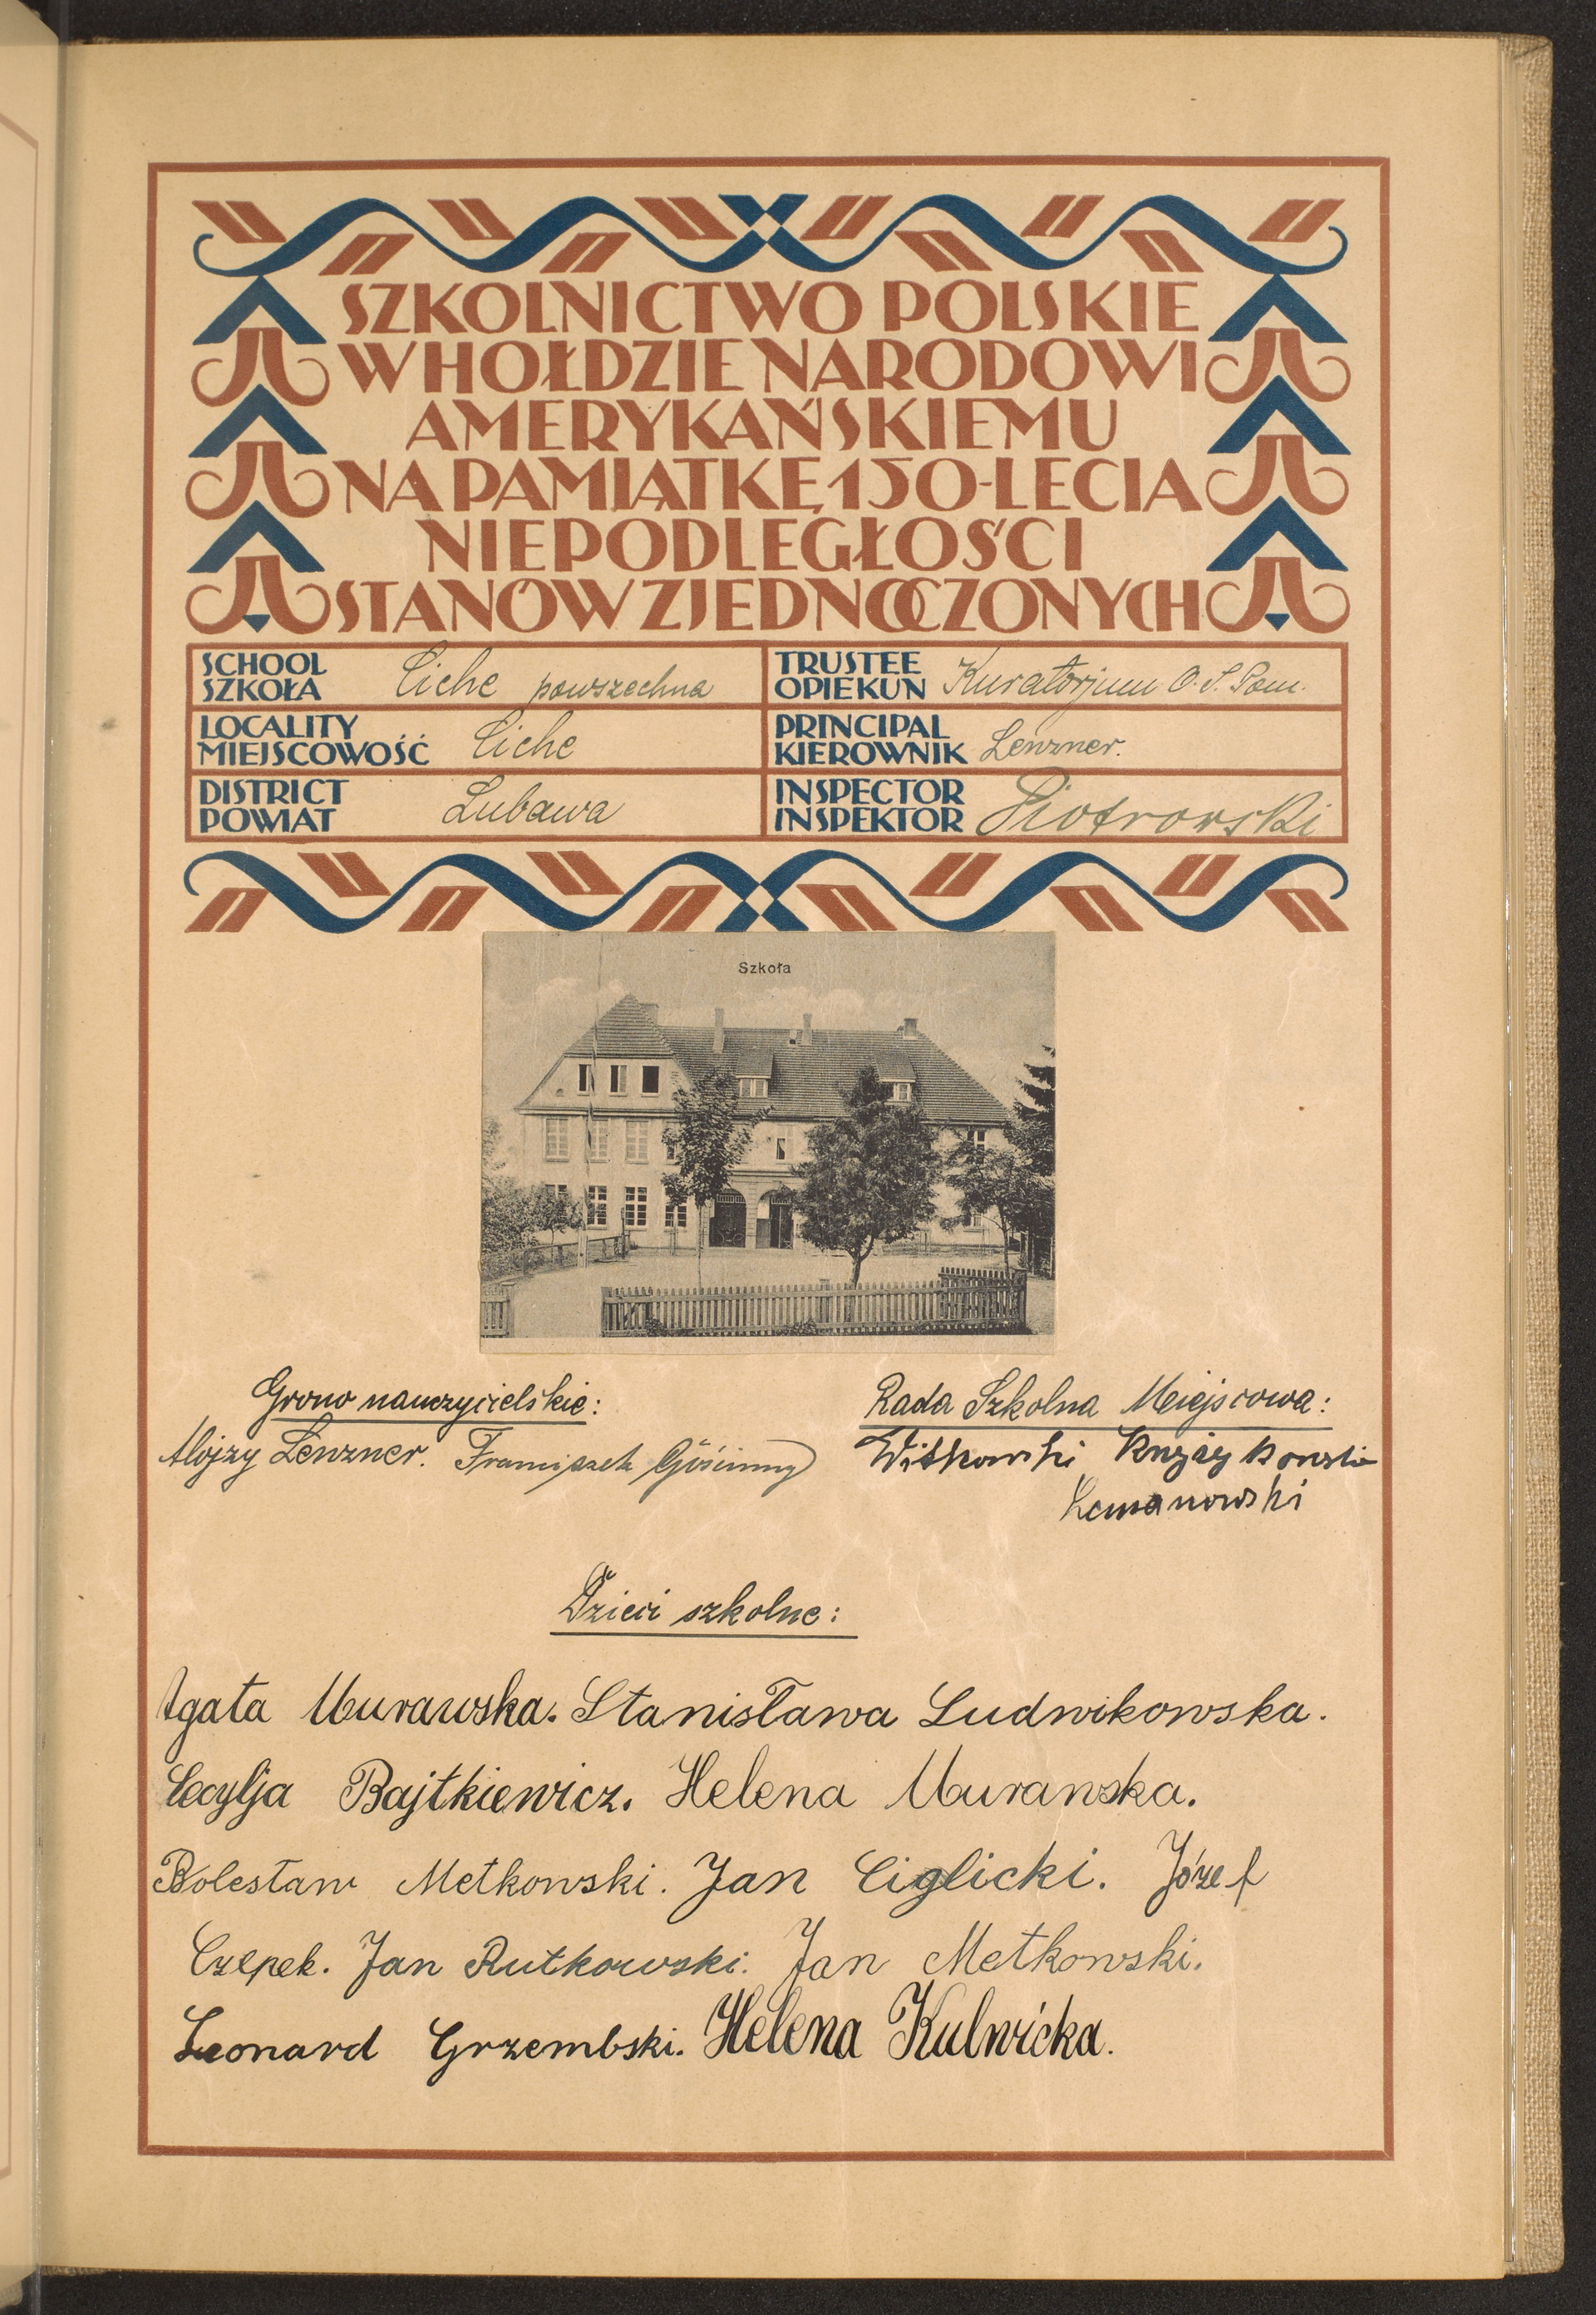 SZKOLNICTWO POLSKIE
W HOŁDZIE NARODOWI
AMERYKAŃSKIEMU
NA PAMIĄTKĘ 150-LECIA
NIEPODLEGŁOŚCI
STANÓW ZJEDNOCZONYCH
SCHOOL
SZKOŁA Ciche powszechna
TRUSTEE
OPIEKUN Kuratorjum O. S. Pom.
LOCALITY
MIEJSCOWOŚĆ Ciche
PRINCIPAL
KIEROWNIK Lenzner.
DISTRICT
POWIAT Lubawa
INSPECTOR
INSPEKTOR Piotrowski
Szkoła
Grono nauczycielskie:
Alojzy Lenzner. Franciszek Gościnny
Rada Szkolna Miejscowa:
Witkowski
Lemanowski
Dzieci szkolne:
Agata Murawska. Stanisława Ludwikowska.
Cecylja Bajtkiewicz. Helena Murawska.
Bolesław Metkowski. Jan Ciglicki. Józef
Czepek. Jan Rutkowski. Jan Metkowski.
Leonard Grzembski. Helena Kulwicka.